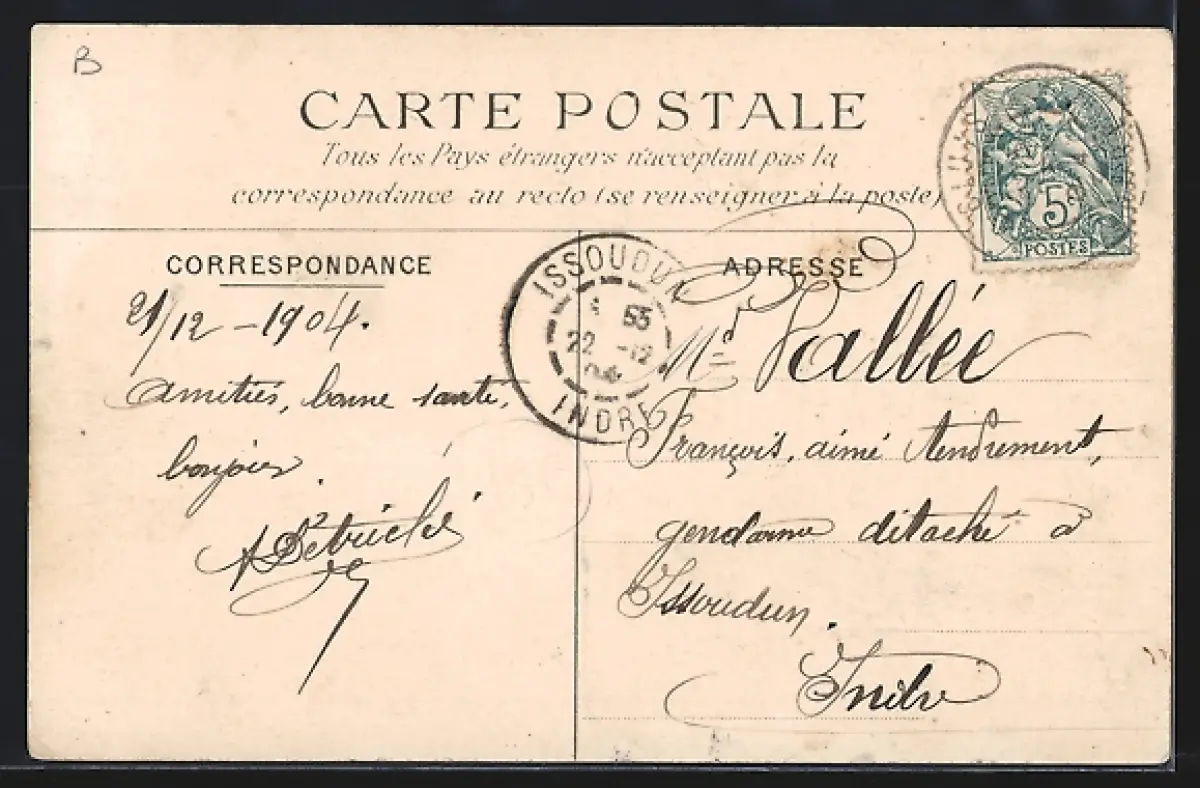 B
CARTE POSTALE
Tous les Pays étrangers n'acceptant pas la
correspondance au recto (se renseigner à la poste)
5
POSTES
CORRESPONDANCE
21/12 - 1904.
amitiés, bonne santé,
bonjour.
ISSOUDUN
55
22 -12
04
INDRE
ADRESSE
Md Vallée
François, aimé tendrement,
gendarme détaché à
Issoudun.
Indre